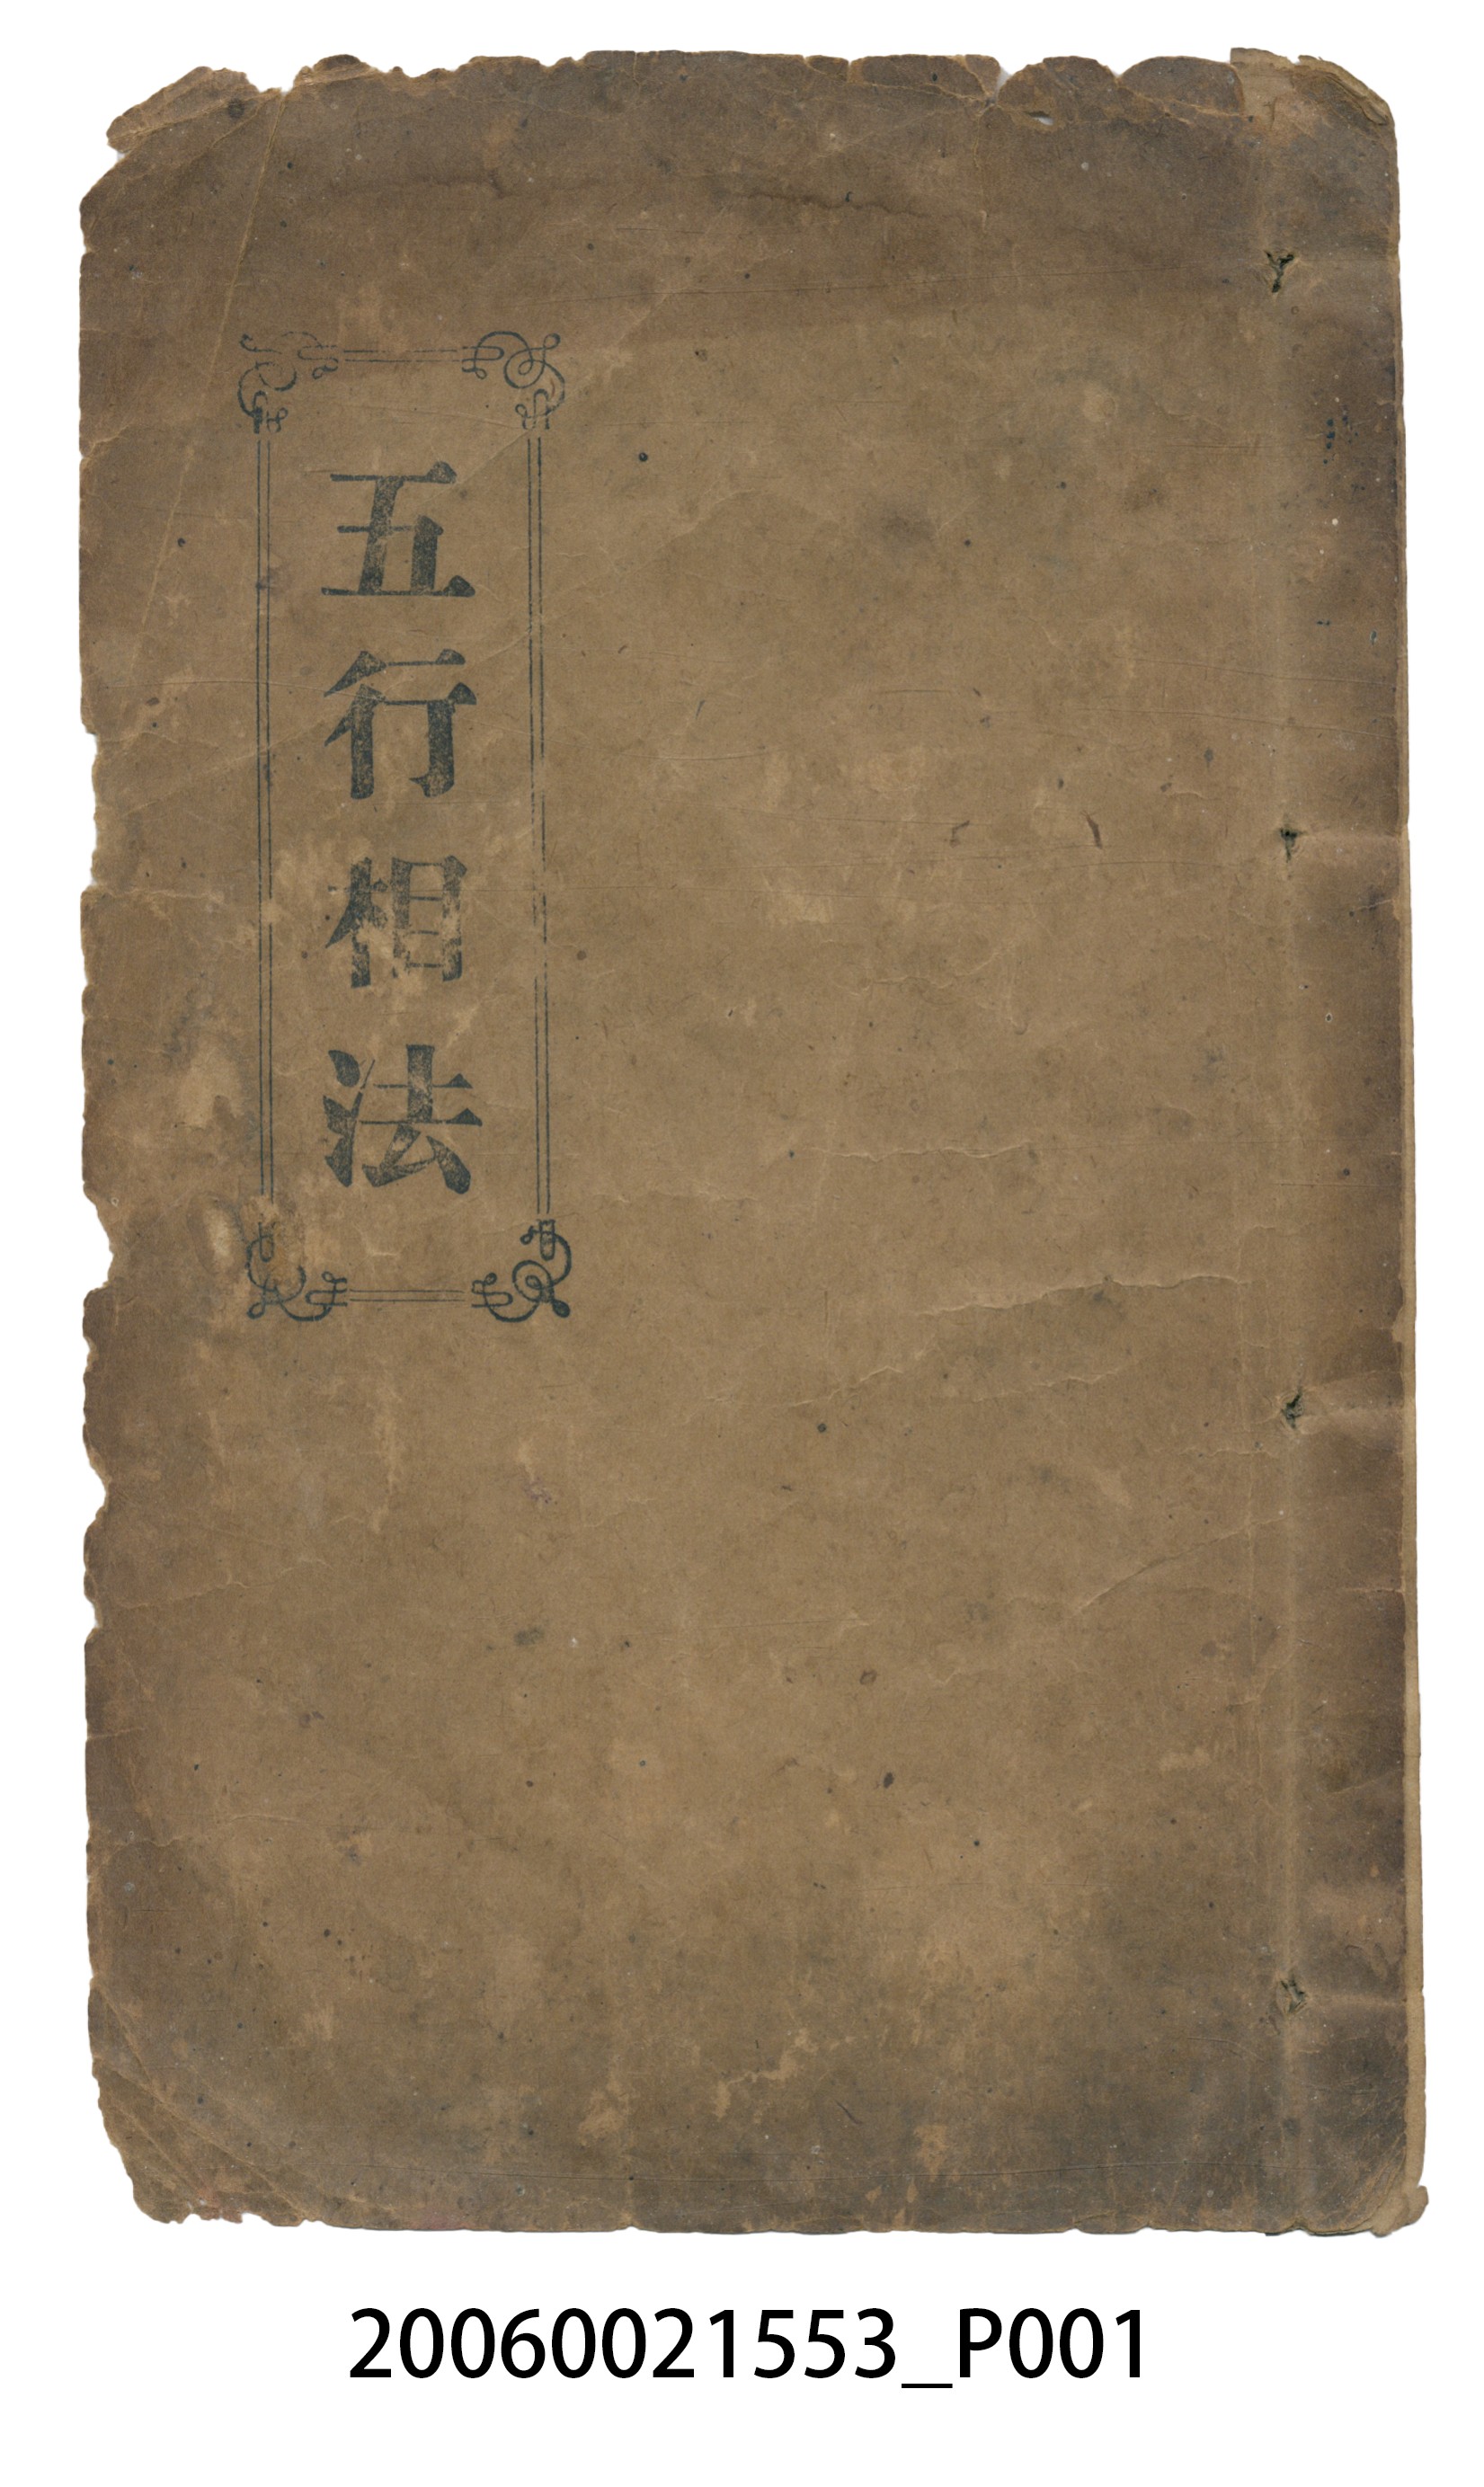 五行相法
20060021553_P001